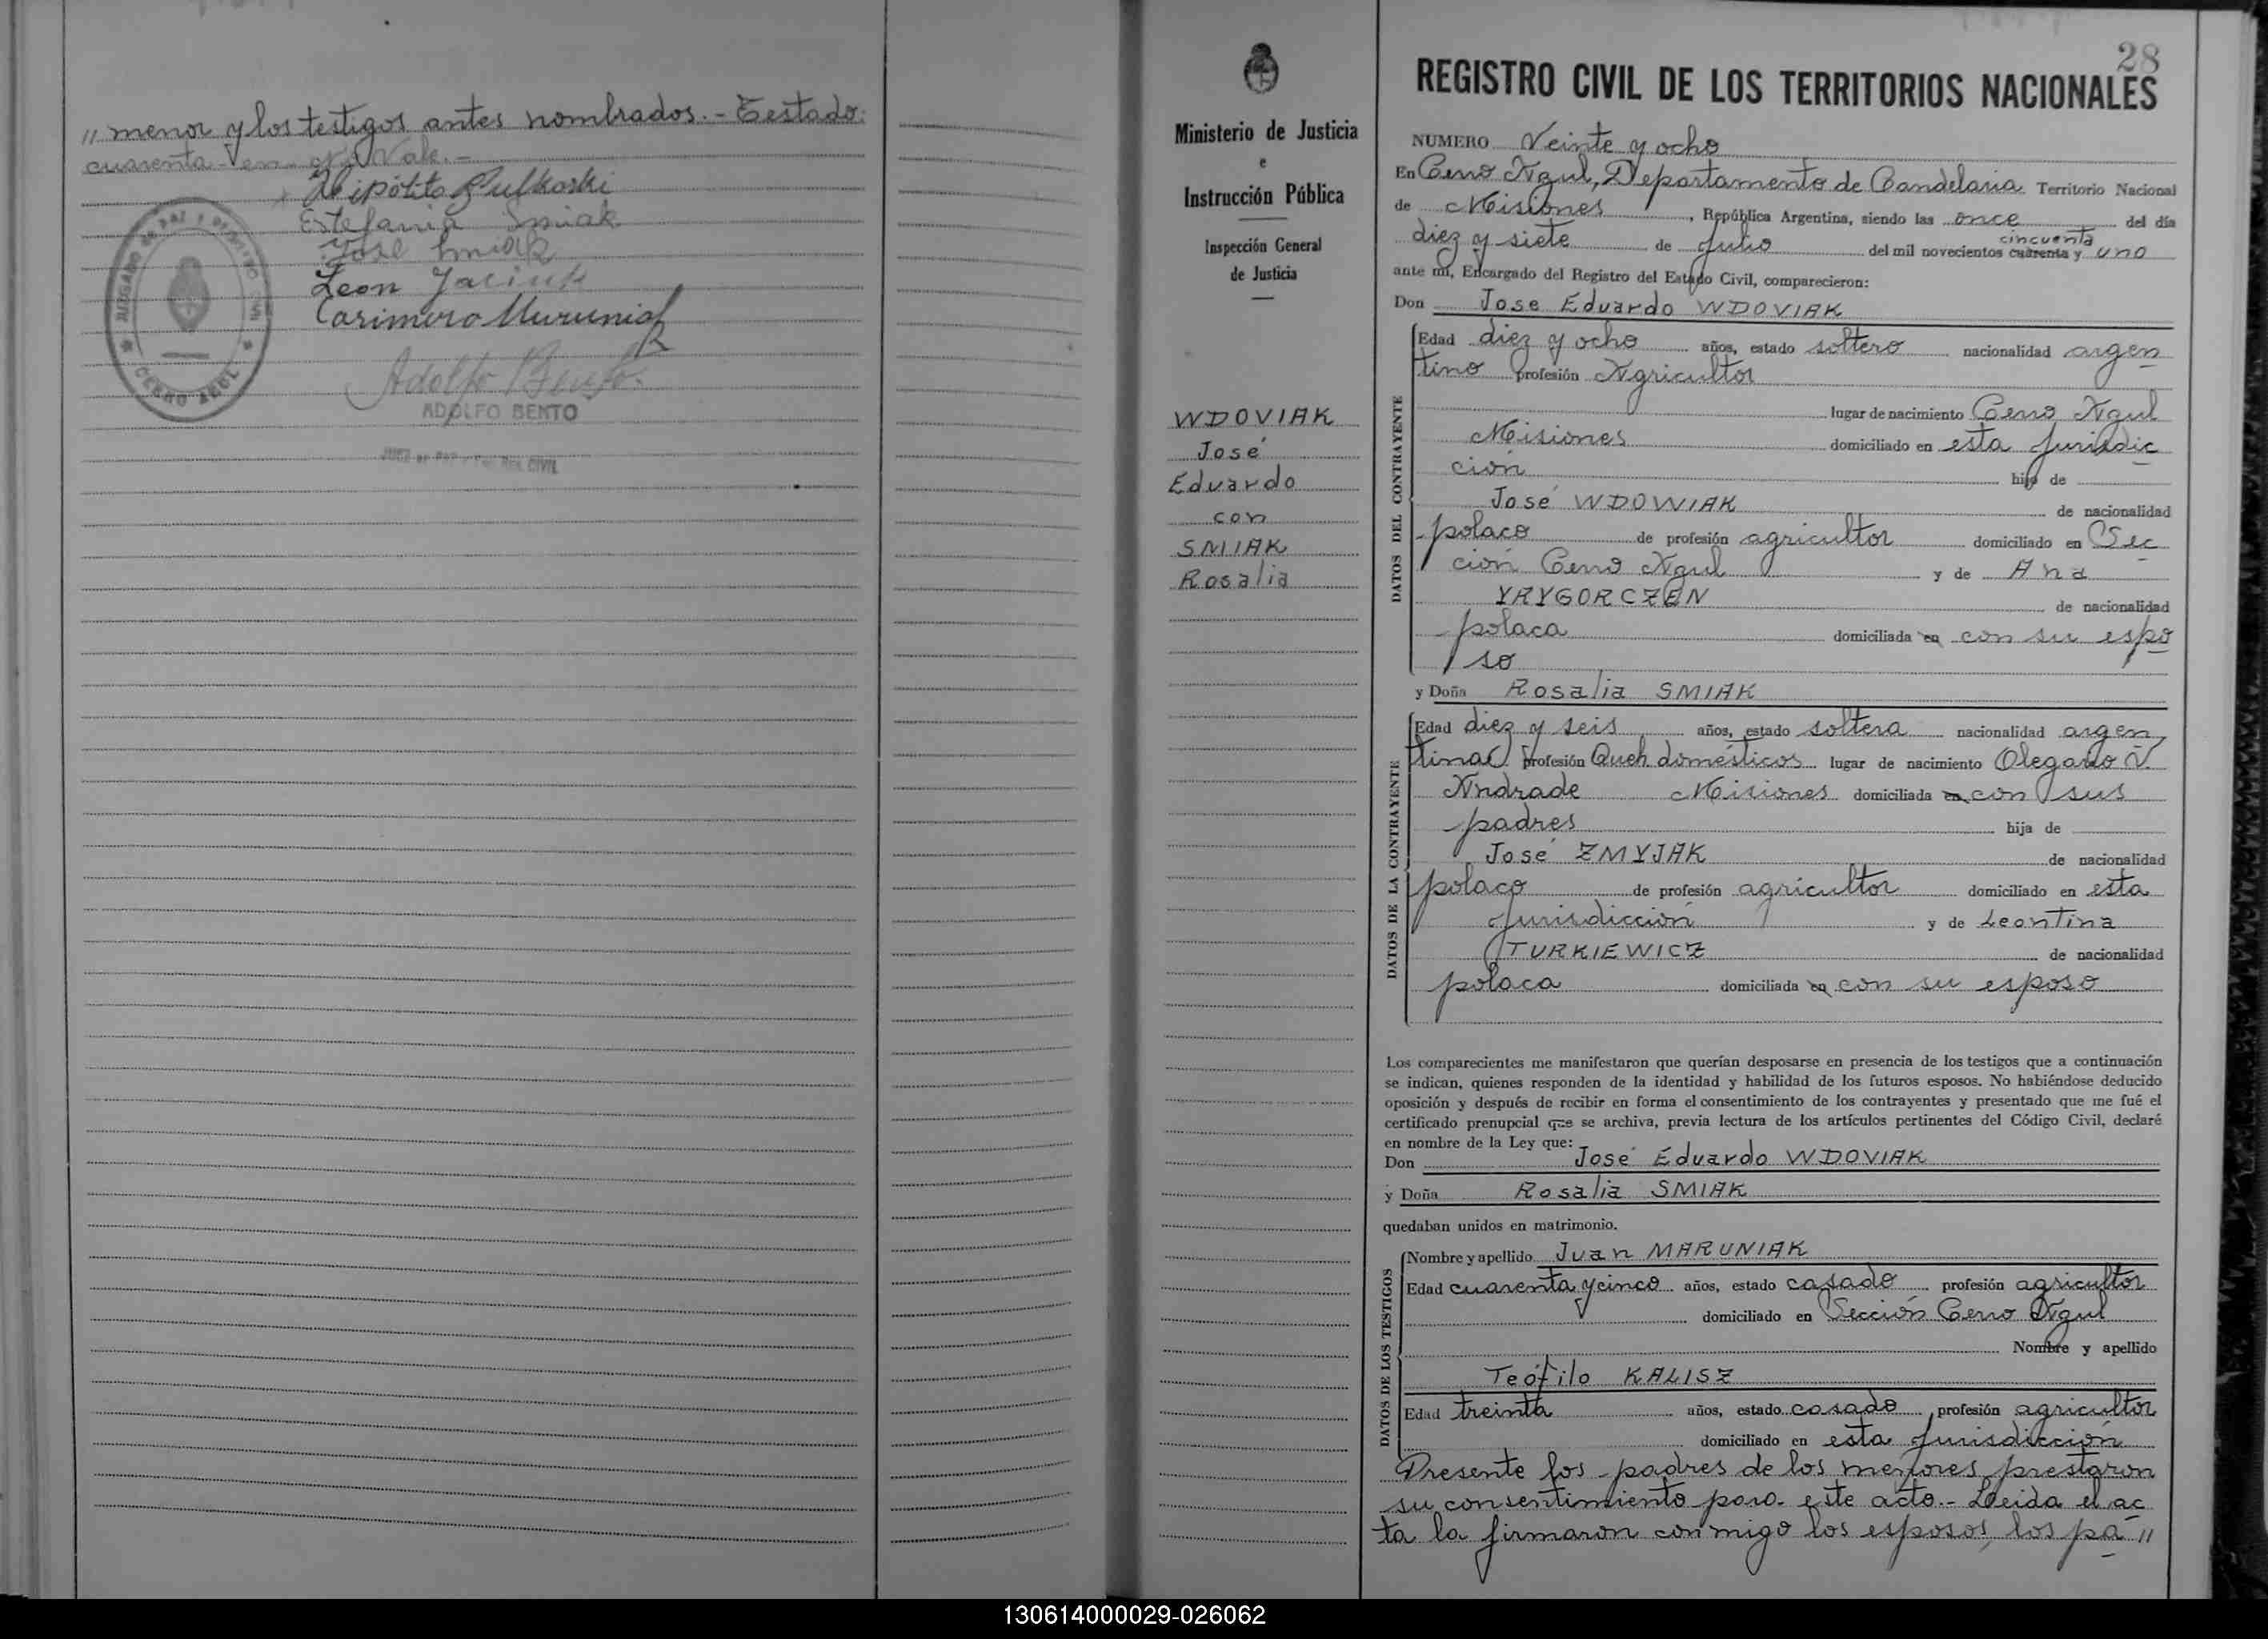 " menor y los testigos antes nombrados.- Testado:
cuarenta - en - Vale.-
Estefania Smiak
José Smiak
Leon Jaciuk
Adolfo Bento
ADOLFO BENTO
CERRO AZUL
28
Ministerio de Justicia
e
Instrucción Pública
Inspección General
de Justicia
WDOVIAK
José
Eduardo
con
SMIAK
Rosalia
REGISTRO CIVIL DE LOS TERRITORIOS NACIONALES
NUMERO Veinte y ocho
En Cerro Azul, Departamento de Candelaria Territorio Nacional
de Misiones, República Argentina, siendo las once del día
diez y siete de Julio del mil novecientos cuarenta y cincuenta uno
ante mi, Encargado del Registro del Estado Civil, comparecieron:
Don Jose Eduardo WDOVIAK
DATOS DEL CONTRAYENTE
Edad diez y ocho años, estado soltero nacionalidad argen
tino profesión Agricultor
lugar de nacimiento Cerro Azul
Misiones domiciliado en esta Jurisdic
ción hijo de
José WDOWIAK de nacionalidad
polaco de profesión agricultor domiciliado en Sec
ción Cerro Azul y de Ana
YRYGORCZEN de nacionalidad
polaca domiciliada en con su espo
so
y Doña Rosalia SMIAK
DATOS DE LA CONTRAYENTE
Edad diez y seis años, estado soltera nacionalidad argen
tina profesión Queh. domésticos lugar de nacimiento Olegario V.
Andrade Misiones domiciliada en con sus
padres hija de
José ZMYJAK de nacionalidad
polaco de profesión agricultor domiciliado en esta
Jurisdicción y de Leontina
TURKIEWICZ de nacionalidad
polaca domiciliada en con su esposo
Los comparecientes me manifestaron que querían desposarse en presencia de los testigos que a continuación
se indican, quienes responden de la identidad y habilidad de los futuros esposos. No habiéndose deducido
oposición y después de recibir en forma el consentimiento de los contrayentes y presentado que me fué el
certificado prenupcial que se archiva, previa lectura de los artículos pertinentes del Código Civil, declaré
en nombre de la Ley que:
Don José Eduardo WDOVIAK
y Doña Rosalia SMIAK
quedaban unidos en matrimonio.
DATOS DE LOS TESTIGOS
Nombre y apellido Juan MARUNIAK
Edad cuarenta y cinco años, estado casado profesión agricultor
domiciliado en Sección Cerro Azul
Nombre y apellido
Teófilo KALISZ
Edad treinta años, estado casado profesión agricultor
domiciliado en esta Jurisdicción
Presente los padres de los menores, prestaron
su consentimiento para este acto.- Leida el ac
ta la firmaron conmigo los esposos, los pa "
130614000029-026062